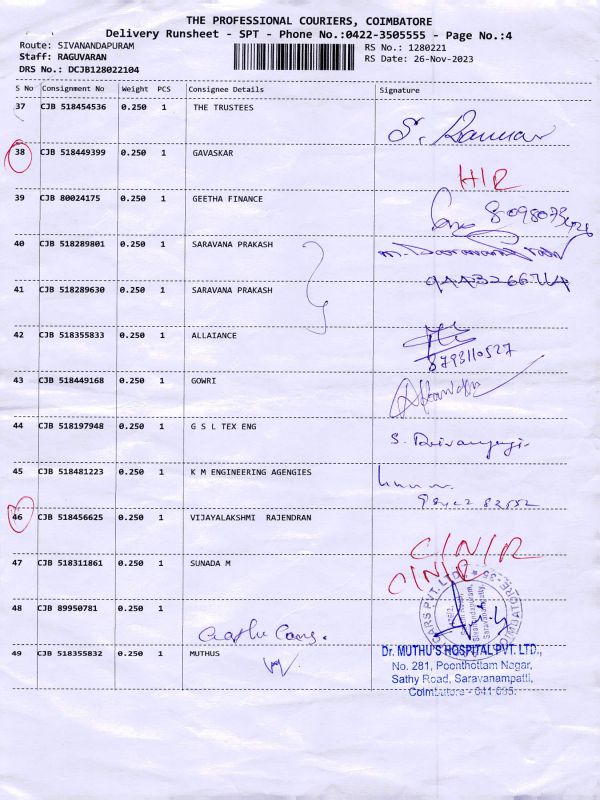 THE PROFESSIONAL COURIERS, COIMBATORE
Delivery Runsheet - SPT - Phone No.:0422-3505555 - Page No.:4
Route: SIVANANDAPURAM RS No.: 1280221
Staff: RAGUVARAN RS Date: 26-Nov-2023
DRS No.: DCJB128022104
S No Consignment No Weight PCS Consignee Details Signature
37 CJB 518454536 0.250 1 THE TRUSTEES
38 CJB 518449399 0.250 1 GAVASKAR
H/R
39 CJB 80024175 0.250 1 GEETHA FINANCE
40 CJB 518289801 0.250 1 SARAVANA PRAKASH
41 CJB 518289630 0.250 1 SARAVANA PRAKASH
42 CJB 518355833 0.250 1 ALLAIANCE
8793110527
43 CJB 518449168 0.250 1 GOWRI
44 CJB 518197948 0.250 1 G S L TEX ENG
45 CJB 518481223 0.250 1 K M ENGINEERING AGENGIES
46 CJB 518456625 0.250 1 VIJAYALAKSHMI RAJENDRAN
C/N/R
47 CJB 518311861 0.250 1 SUNADA M
C/N/R
48 CJB 89950781 0.250 1
49 CJB 518355832 0.250 1 MUTHUS
Dr. MUTHU'S HOSPITAL PVT. LTD.,
No. 281, Poonthottam Nagar,
Sathy Road, Saravanampatti,
Coimbatore - 641 035.